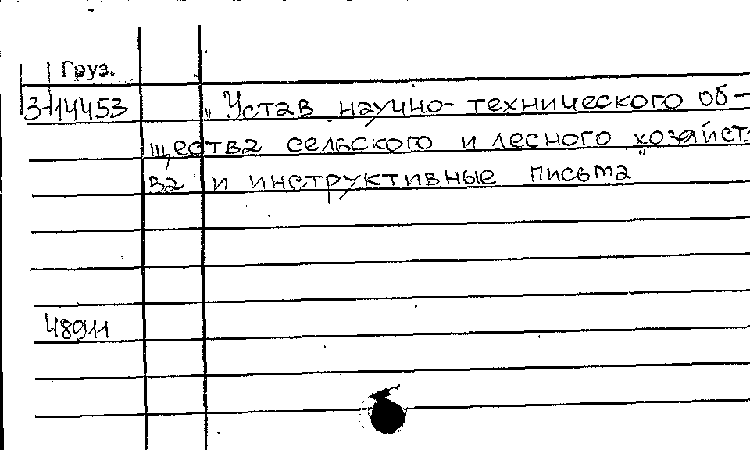 Груз.
3-14453 „Устав научно-технического об-
щества сельского и лесного хозяйст-
ва и инструктивные письма"
48911